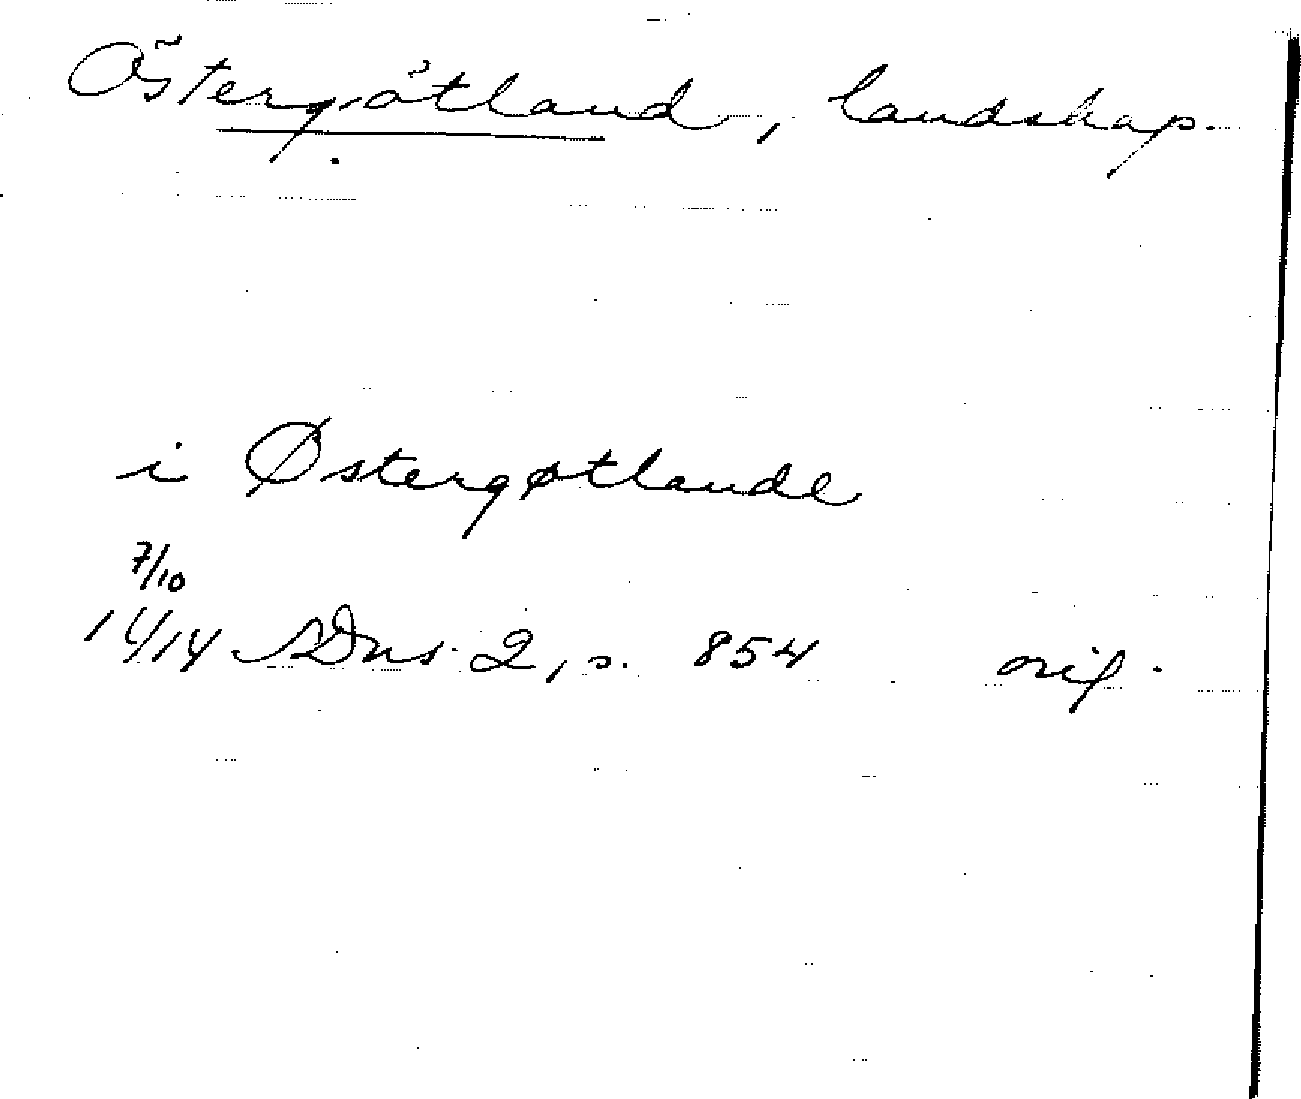 Östergötland, landskap.
i Østergøtlande
7/10
1414 SDns 2, s. 854 orig.